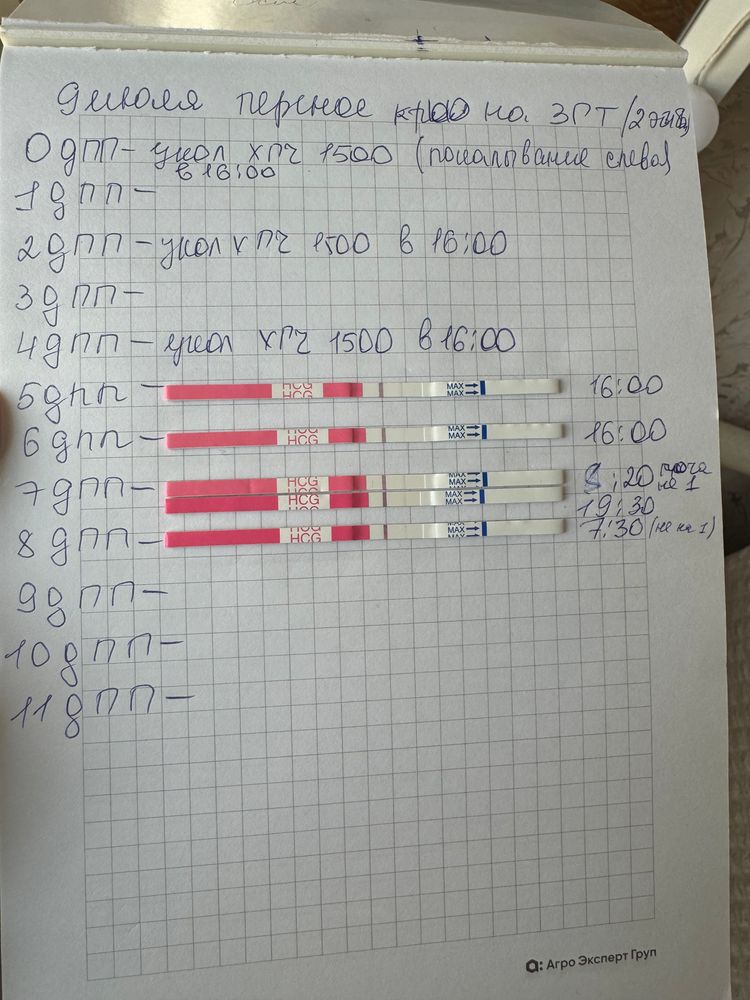 9 июля перенос крио на ЗГТ (2 эмб)
0 дПП - укол ХГЧ 1500 (покалывание слева)
в 16:00
1 дПП -
2 дПП - укол ХГЧ 1500 в 16:00
3 дПП -
4 дПП - укол ХГЧ 1500 в 16:00
5 дпп - HCG HCG MAX MAX 16:00
6 дпп - HCG HCG MAX MAX 16:00
7 дПП - HCG MAX MAX :20 моча
не 1
HCG MAX MAX 19:30
8 дПП - HCG HCG MAX MAX 7:30 (не на 1)
9 дПП -
10 дПП -
11 дПП -
a: Агро Эксперт Груп